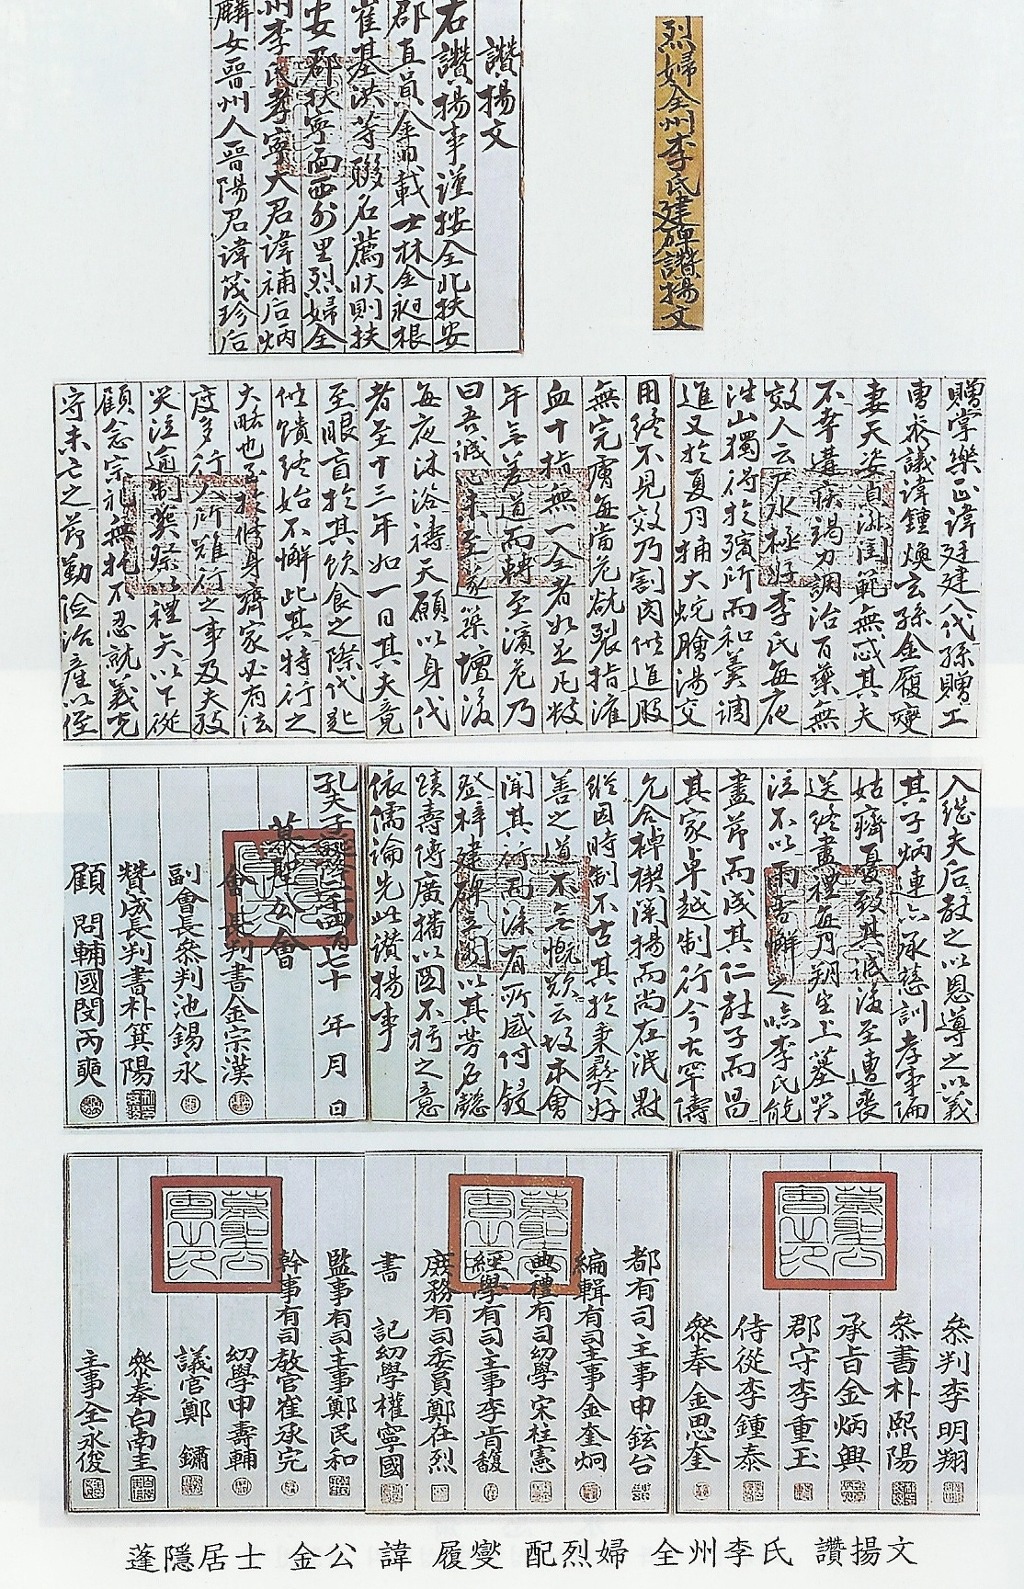 烈婦全州李氏建碑讚揚文
讚揚文
右讚揚事謹按全北扶安
郡直員金載士林金永根
崔基洪等聯名薦狀則扶
安郡扶寧面西外里烈婦全
州李氏孝寧大君諱補后炳
麟女晋州人晋陽君諱茂珍后
贈掌樂正諱廷建八代孫贈工
曹參議諱鍾煥玄孫金履燮
妻天姿貞淑閨範無忒其夫
不幸遘疾竭力調治百藥無
效人云尸水極好李氏每夜
注山獨得於殯所而和羹調
進又於夏月捕大蛇膾湯交
用終不見效乃割肉似進股
無完膚每當危欬裂指灌
血十指無一全者如是凡數
年無差道而轉至濱危乃
曰吾誠未至家築壇後
每夜沐浴禱天願以身代
者至十三年如一日其夫竟
至眼盲於其飮食之際代匙
似饋終始不懈此其特行之
大略也至於修身齊家必有法
度多行人所難行之事及夫歿
哭泣逾制葬祭以禮矢以下從
顧念宗祀無托不忍就義克
守未亡之節勤儉治產以侄
入継夫后敎之以恩導之以義
其子炳連亦承慈訓孝事偏
姑癠憂致其誠後至遭喪
送終盡禮每月朔望上墓哭
泣不以雨雪懈之噫李氏能
盡節而成其仁敎子而昌
其家卓越制行今古罕儔
允合棹楔闡揚而尚在泯默
縱因時制不古其於秉彝好
善之道不無慨歎云故本會
聞其行司深有所感付鋟
登梓建碑立閣以其芳名懿
蹟壽傳廣播以圖不朽之意
依儒論先此讚揚事
孔夫子 年 月 日
慕聖公會
會長判書金宗漢
副會長參判池錫永
贊成長判書朴箕陽
顧問輔國閔丙奭
參判李明翔
參書朴熙陽
承旨金炳興
郡守李重玉
侍從李鍾泰
參奉金思奎
都有司主事申鉉台
編輯有司主事金奎炯
典禮有司幼學宋柱憲
經學有司主事李肯馥
庶務有司委員鄭在烈
書記幼學權寧國
監事有司主事鄭民和
幹事有司敎官崔承完
幼學申壽輔
議官鄭鏽
參奉白南圭
主事全永俊
蓬隱居士 金公 諱 履燮 配烈婦 全州李氏 讚揚文